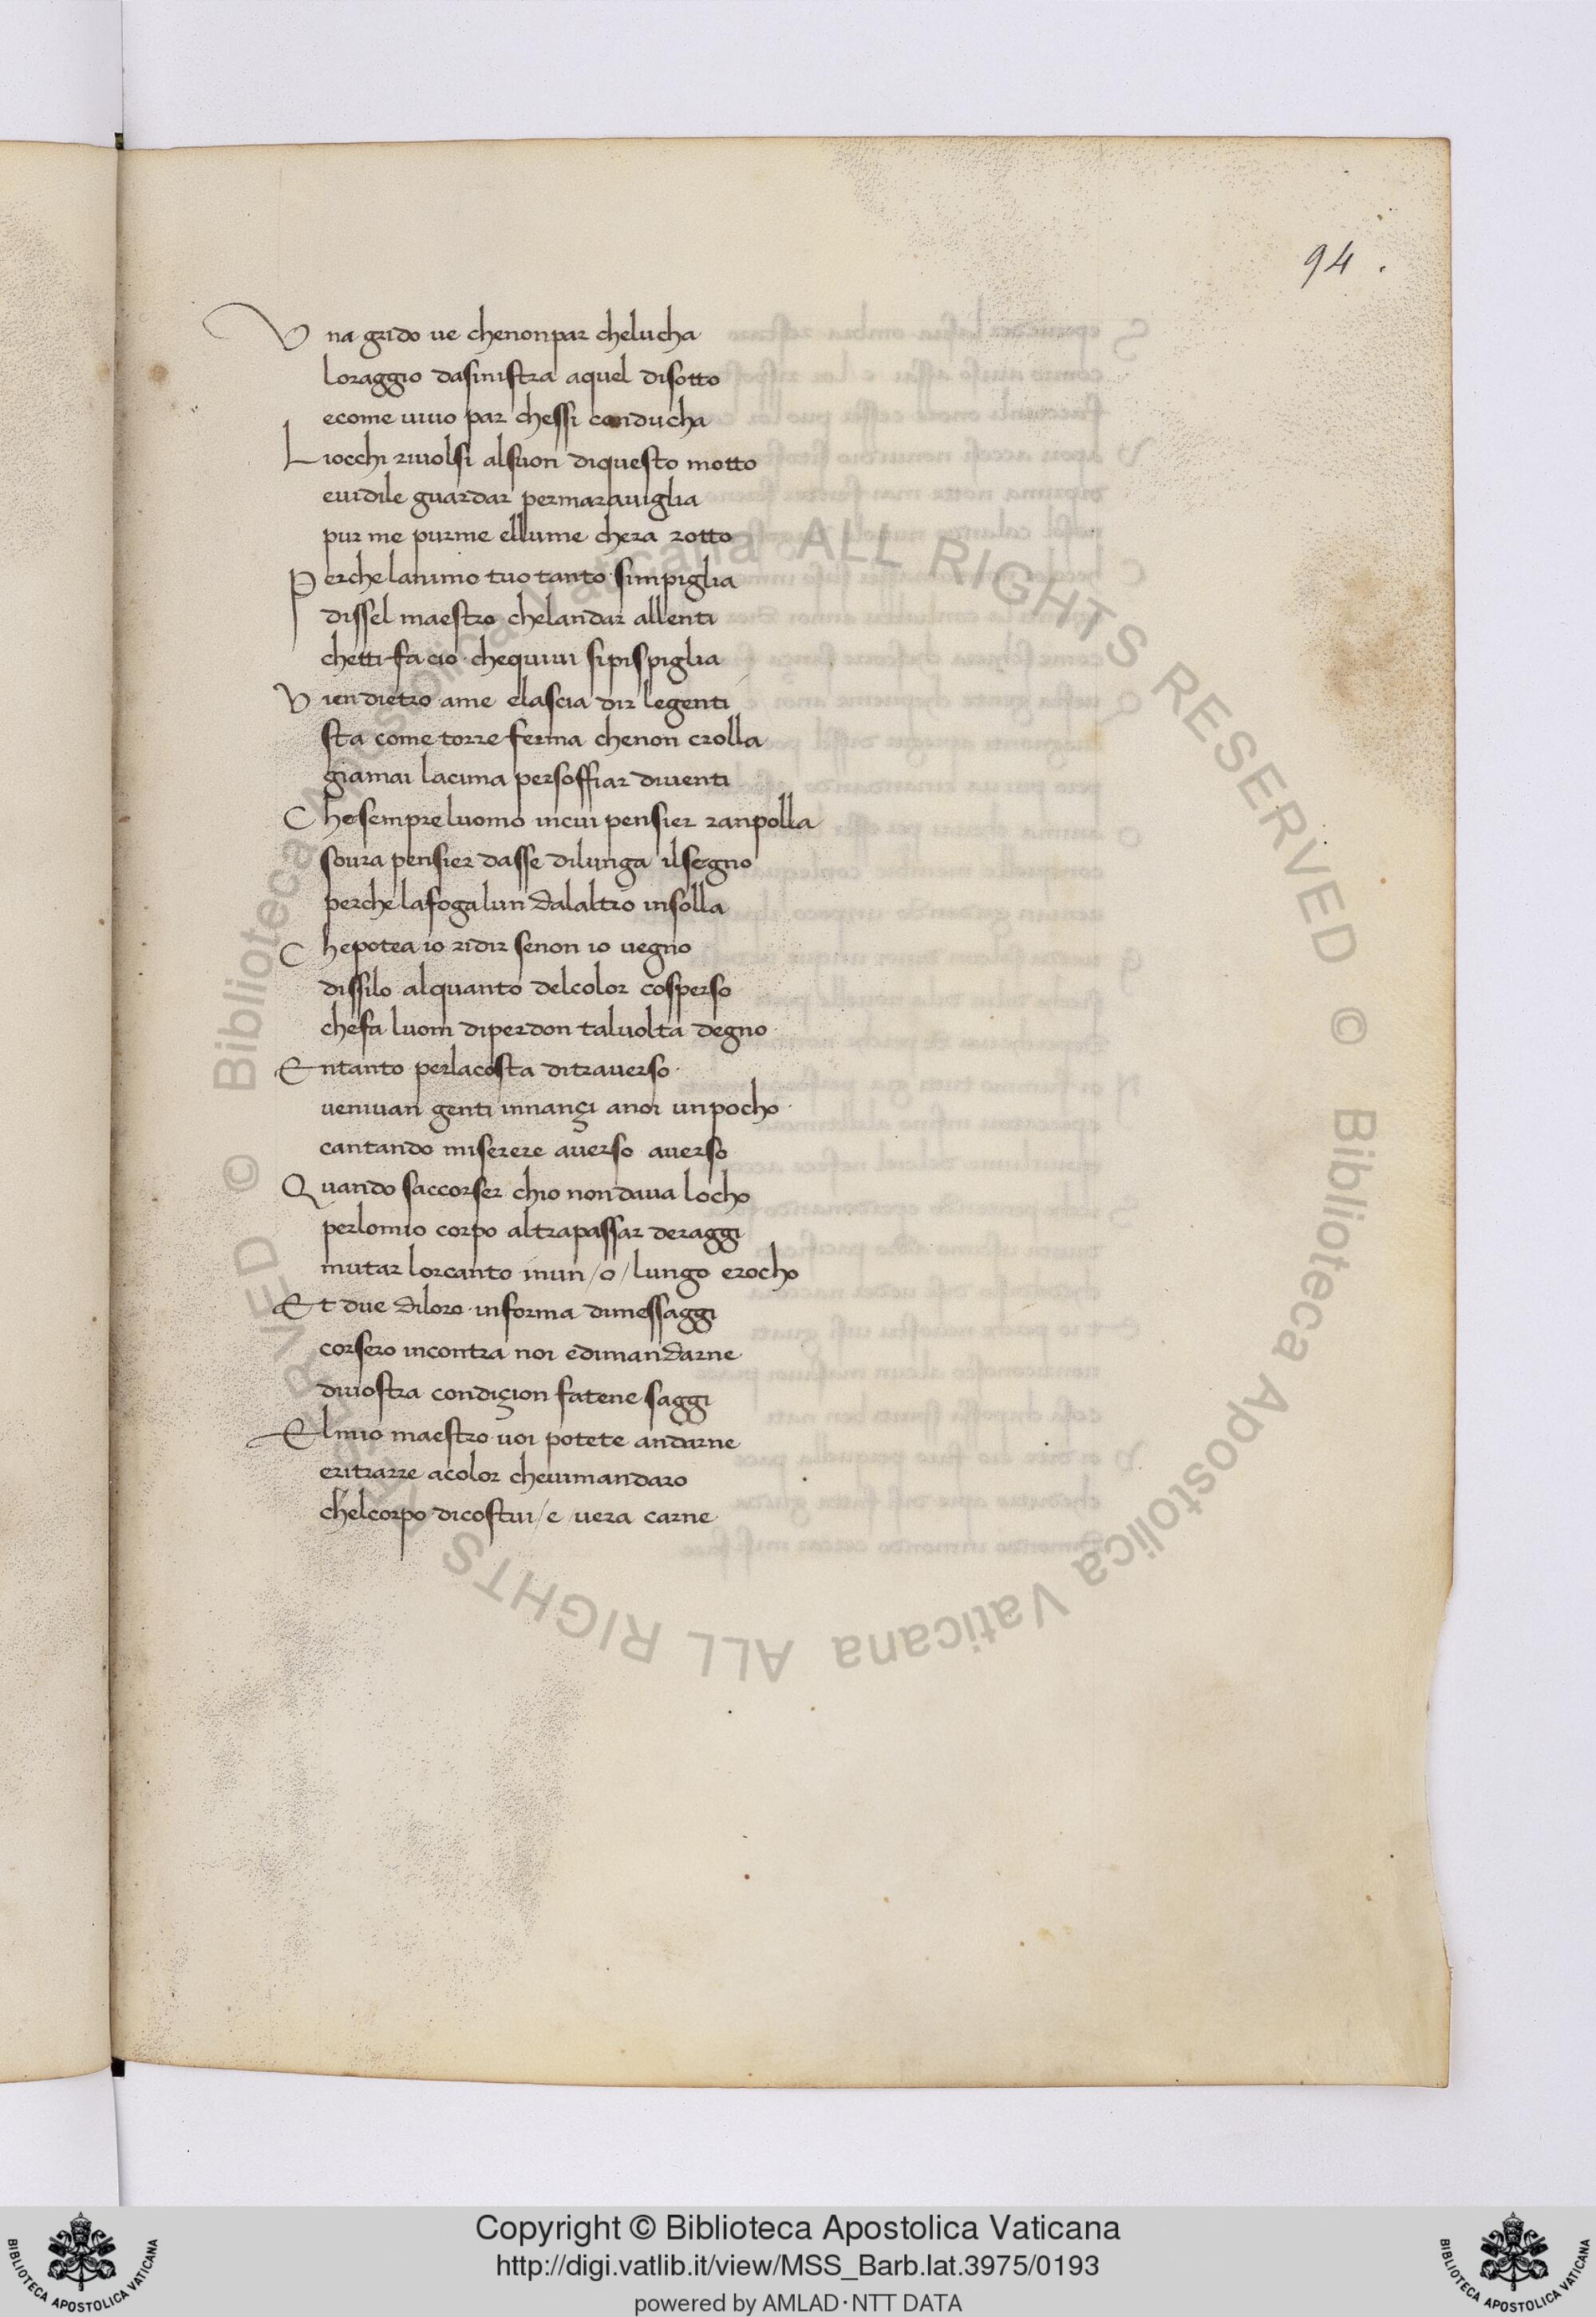 94 .
Una grido ue chenonpar chelucha
loraggio dasinistra aquel disotto
ecome uiuo par chessi conducha
Liocchi riuolsi alsuon diquesto motto
euidile guardar permarauiglia
pur me purme ellume chera rotto
Perchelanimo tuo tanto simpiglia
dissel maestro chelandar allenti
chetti facio chequiui sipispiglia
Vien dietro ame elascia dir legenti
sta come torre ferma chenon crolla
giamai lacima persoffiar diuenti
Chesempre luomo incui pensier ranpolla
soura pensier dasse dilunga ilsegno
perche lafoga lun dalaltro insolla
Chepotea io ridir senon io uegno
dissilo alquanto delcolor cosperso
chefa luom diperdon taluolta degno
Entanto perlacosta ditrauerso
veniuan genti innançi anoi unpocho
cantando miserere auerso auerso
Quando saccorser chio non daua locho
perlomio corpo altrapassar deraggi
mutar lorcanto inun/o/lungo erocho
Et due diloro informa dimessaggi
corsero incontra noi edimandarne
diuostra condiçion fatene saggi
Elmio maestro uoi potete andarne
eritrarre acolor cheuimandaro
chelcorpo dicostui/e uera carne
© Biblioteca Apostolica Vaticana ALL RIGHTS RESERVED © Biblioteca Apostolica Vaticana ALL RIGHTS RESERVED
Copyright © Biblioteca Apostolica Vaticana
http://digi.vatlib.it/view/MSS_Barb.lat.3975/0193
powered by AMLAD·NTT DATA
BIBLIOTECA APOSTOLICA VATICANA
BIBLIOTECA APOSTOLICA VATICANA